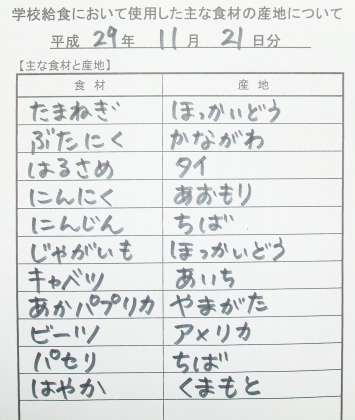 学校給食において使用した主な食材の産地について
平成 29年 11月 21日分
【主な食材と産地】
食材 産地
たまねぎ ほっかいどう
ぶたにく かながわ
はるさめ タイ
にんにく あおもり
にんじん ちば
じゃがいも ほっかいどう
キャベツ あいち
あかパプリカ やまがた
ビーツ アメリカ
パセリ ちば
はやか くまもと